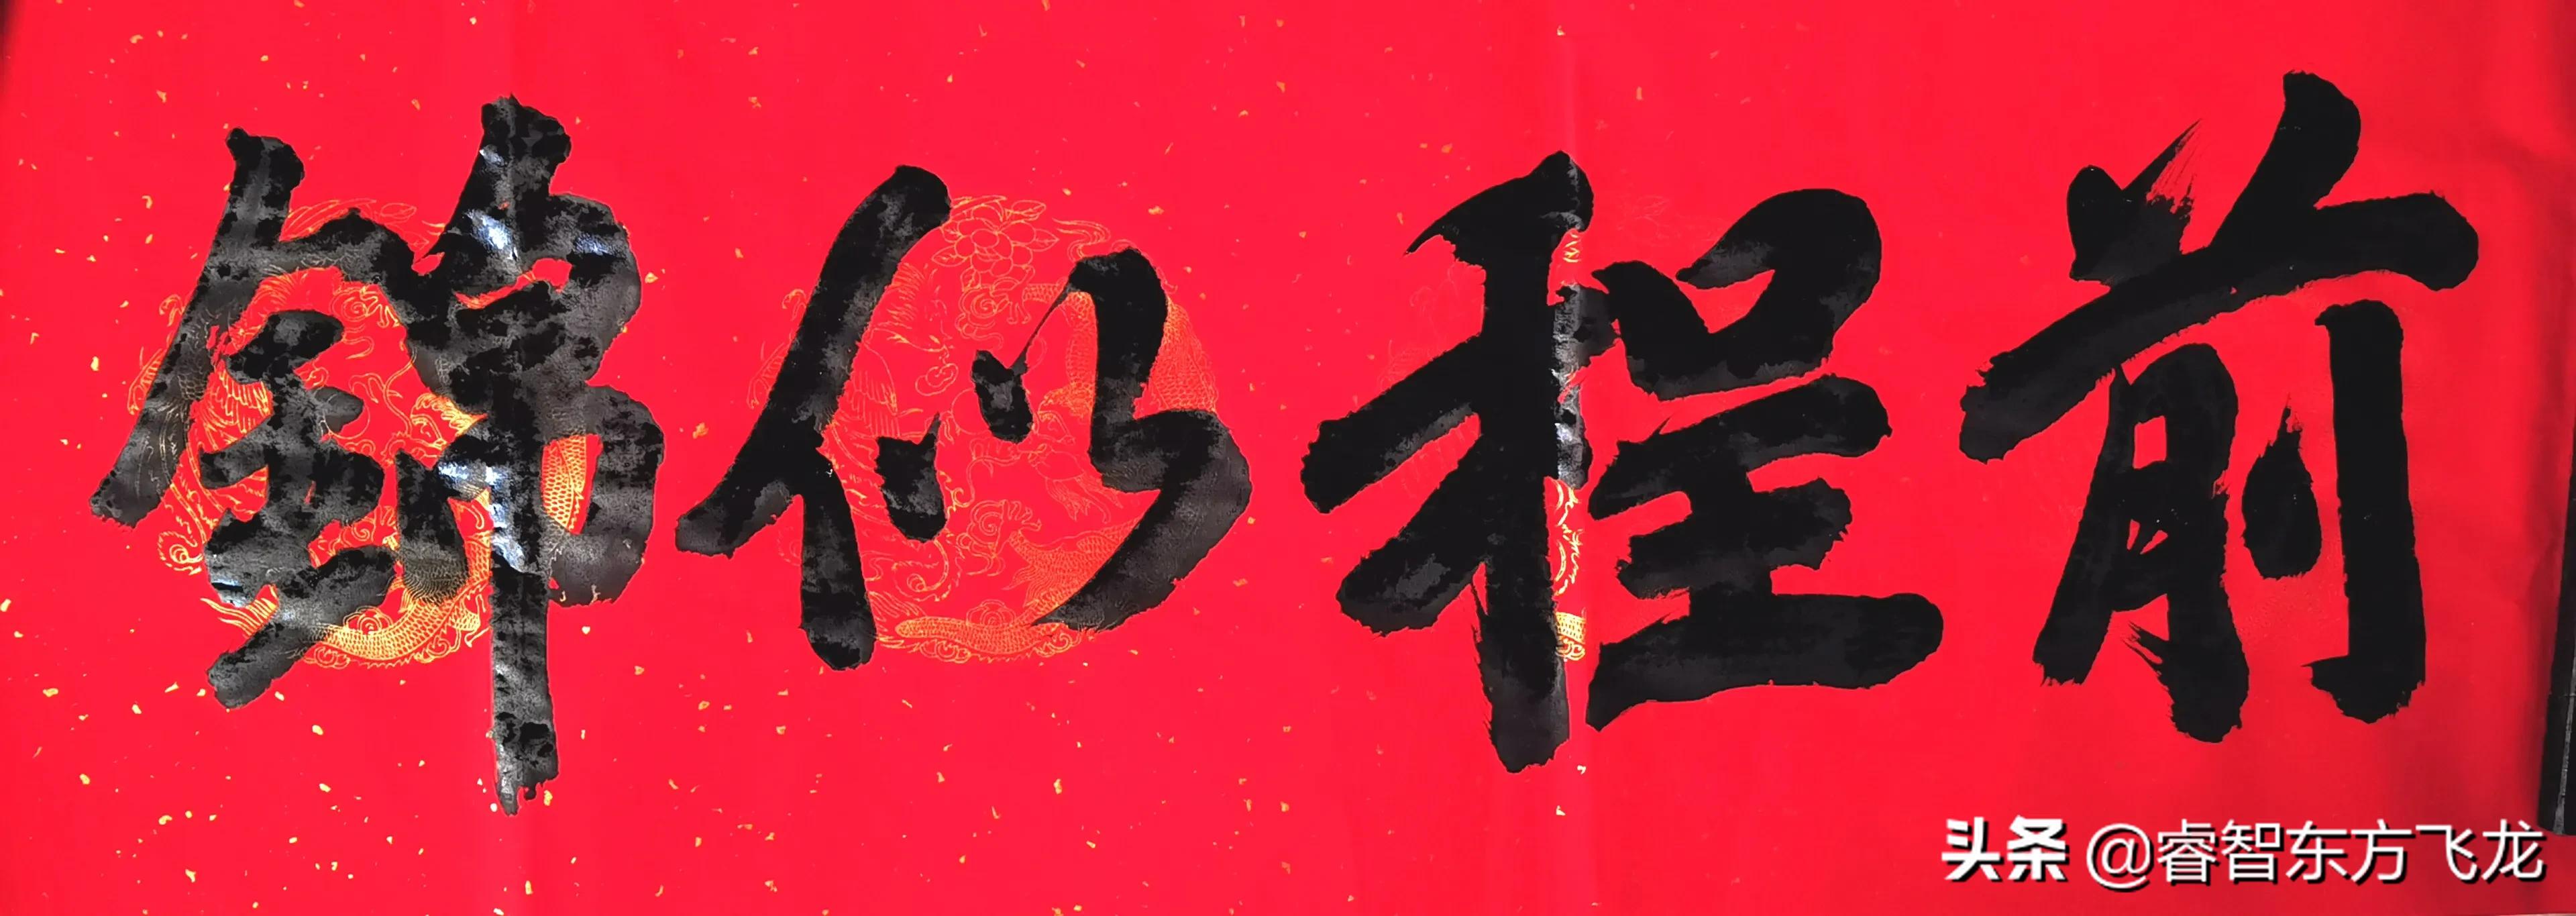 前程似錦
头条 @睿智东方飞龙